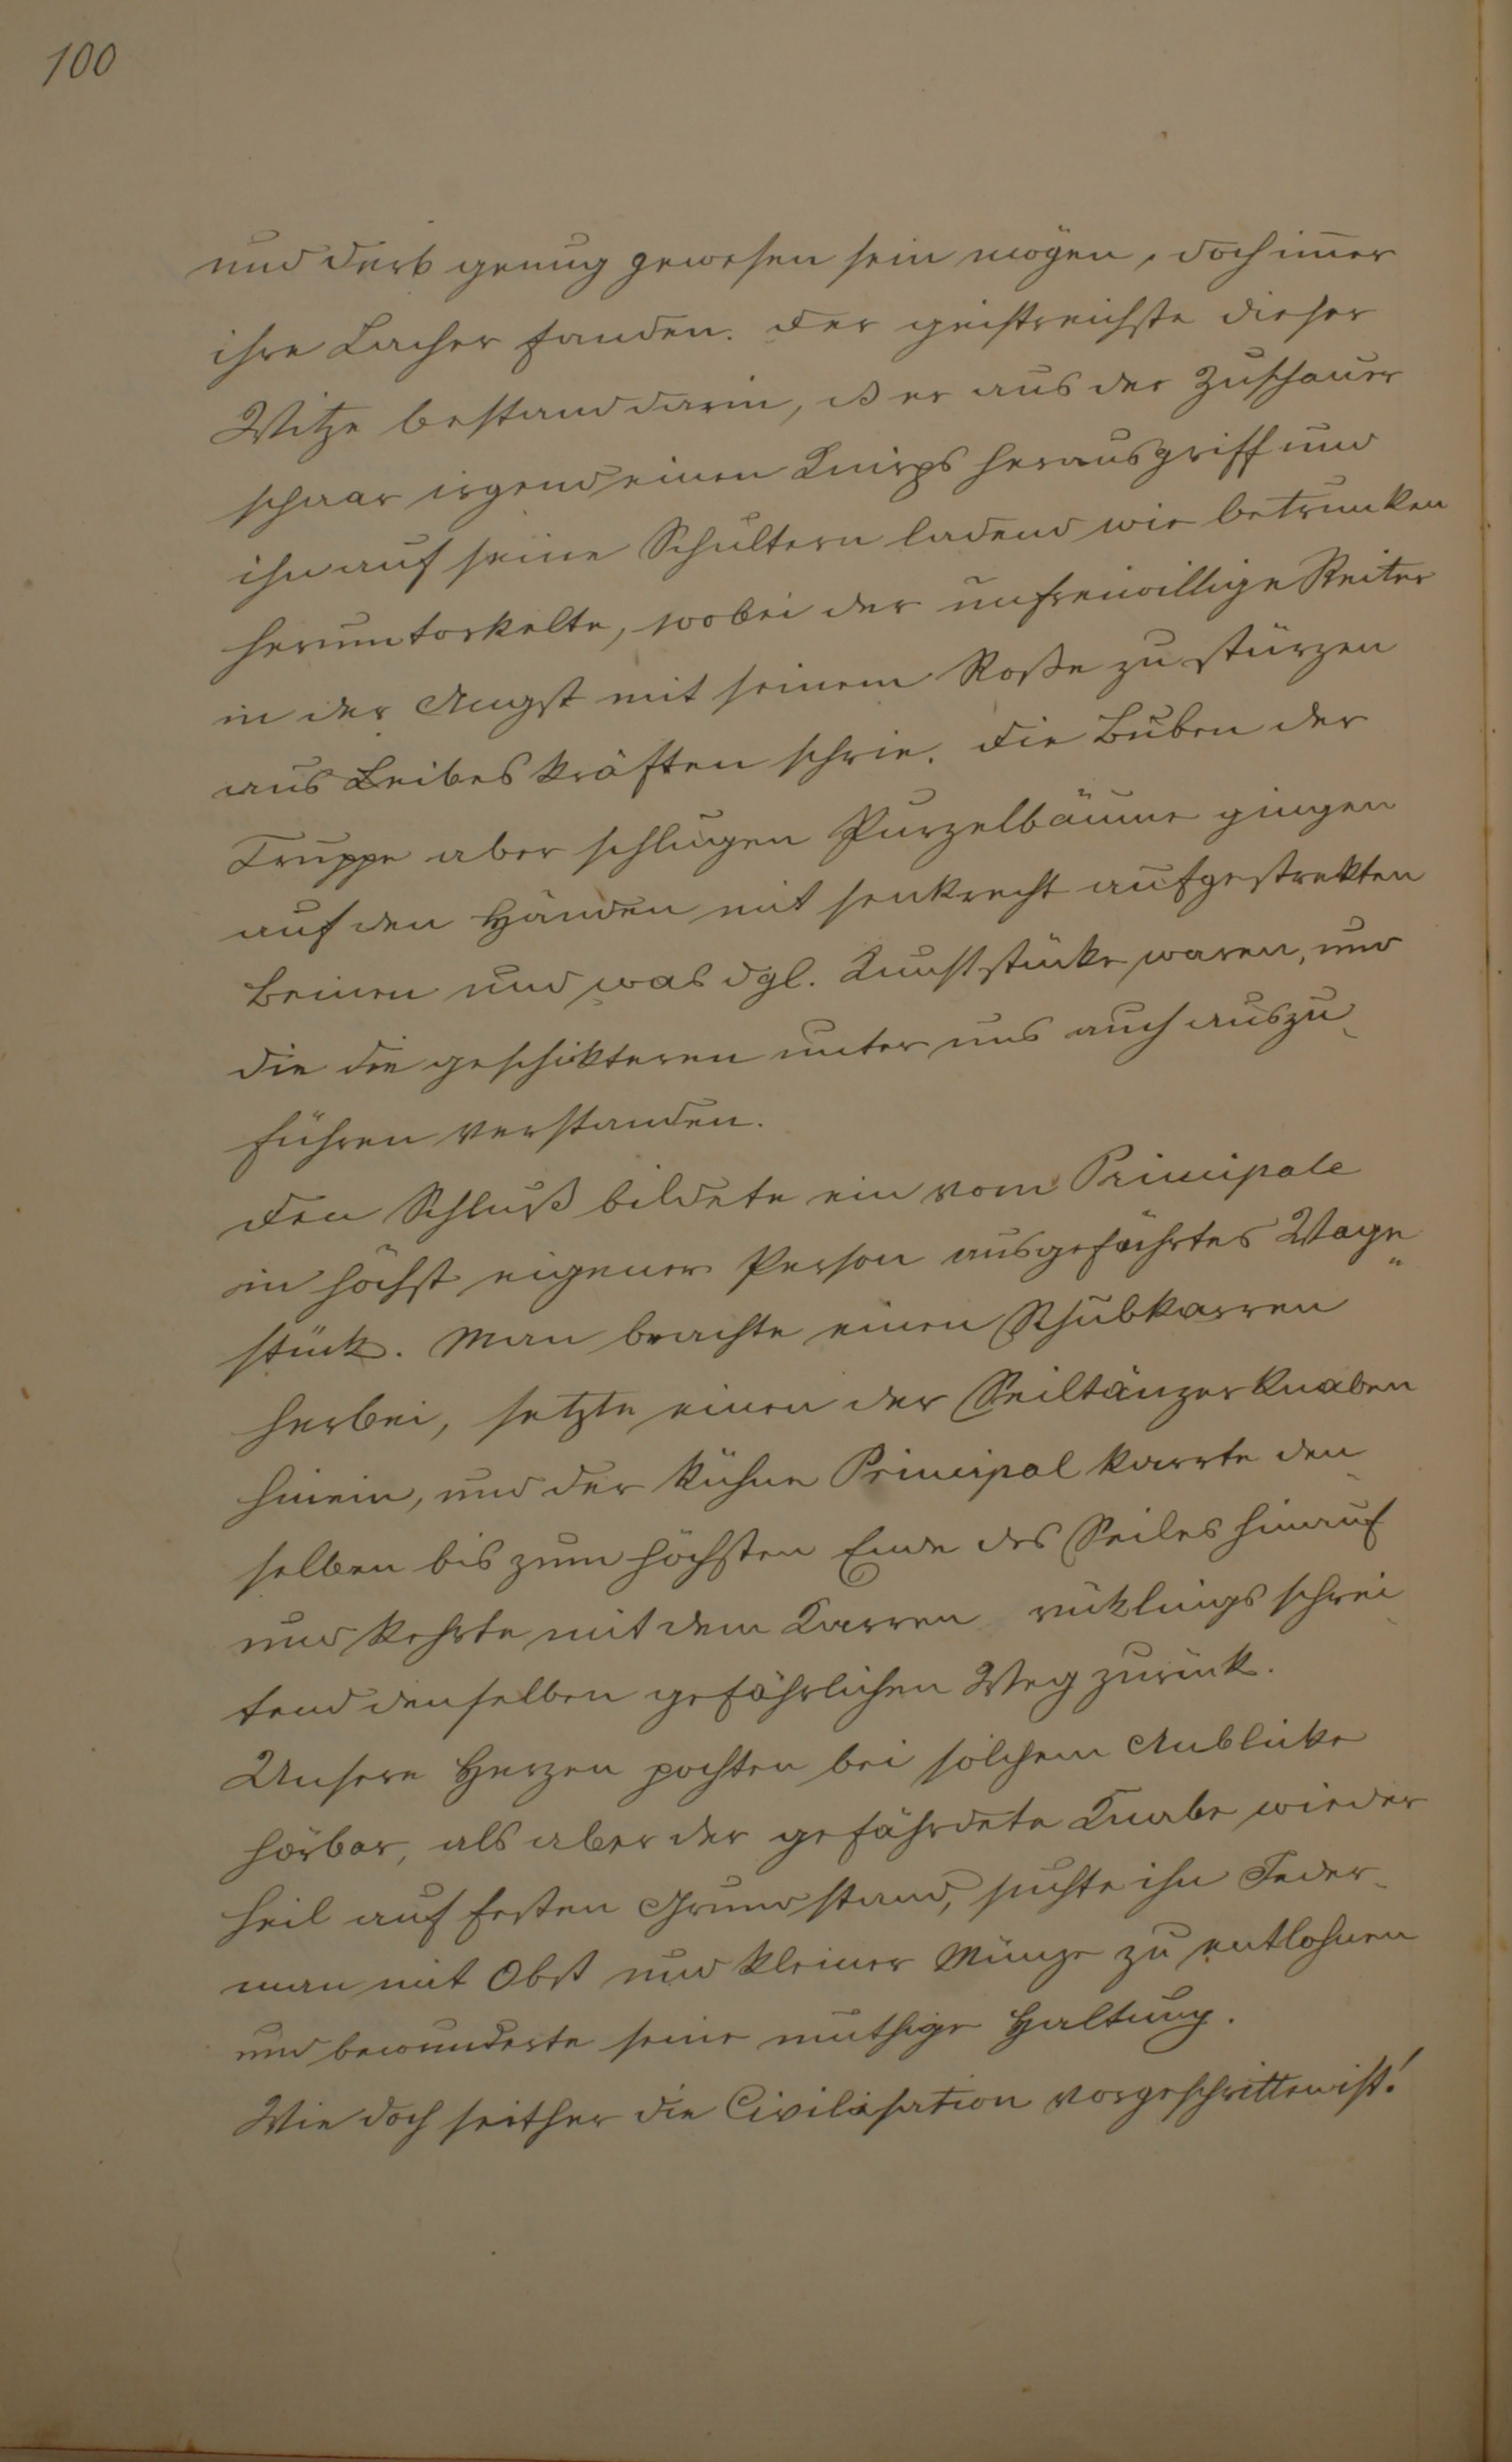 100
und derb genug gewesen sein mögen, doch im̄er
ihre Lacher fanden. Der geistreichste dieser
Witze bestand darin, ß er aus der Zuschauer
schaar irgend einen Knirps herausgriff und
ihn auf seine Schultern ladend wie betrunken
herumtorkelte, wobei der unfreiwillige Reiter
in der Angst mit seinem Roße zu stürzen
aus Leibeskräften schrie. Die Buben der
Truppe aber schlugen Purzelbäume gingen
auf den Händen mit senkrecht aufgestrekten
Beinen und was dgl. Kunststücke waren, und
die die geschikteren unter uns auch auszu-
führen verstanden.
Den Schluß bildete ein vom Principale
in höchst eigener Person ausgeführtes Wage
stück. Man brachte einen Schubkarren
herbei, setzte einen der Seiltänzerknaben
hinein, und der kühne Principal karrte den-
selben bis zum höchsten Ende des Seiles hinauf
und kehrte mit dem Karren rücklings schrei-
tend denselben gefährlichen Weg zurück.
Unsere Herzen pochten bei solchem Anblicke
hörbar, als aber der gefährdete Knabe wieder
heil auf festen Grund stand, suchte ihn Jeder-
man mit Obst und kleiner Münze zu entlohnen
und bewunderte seine muthige Haltung.
Wie doch seither die Civilisation vorgeschritten ist!